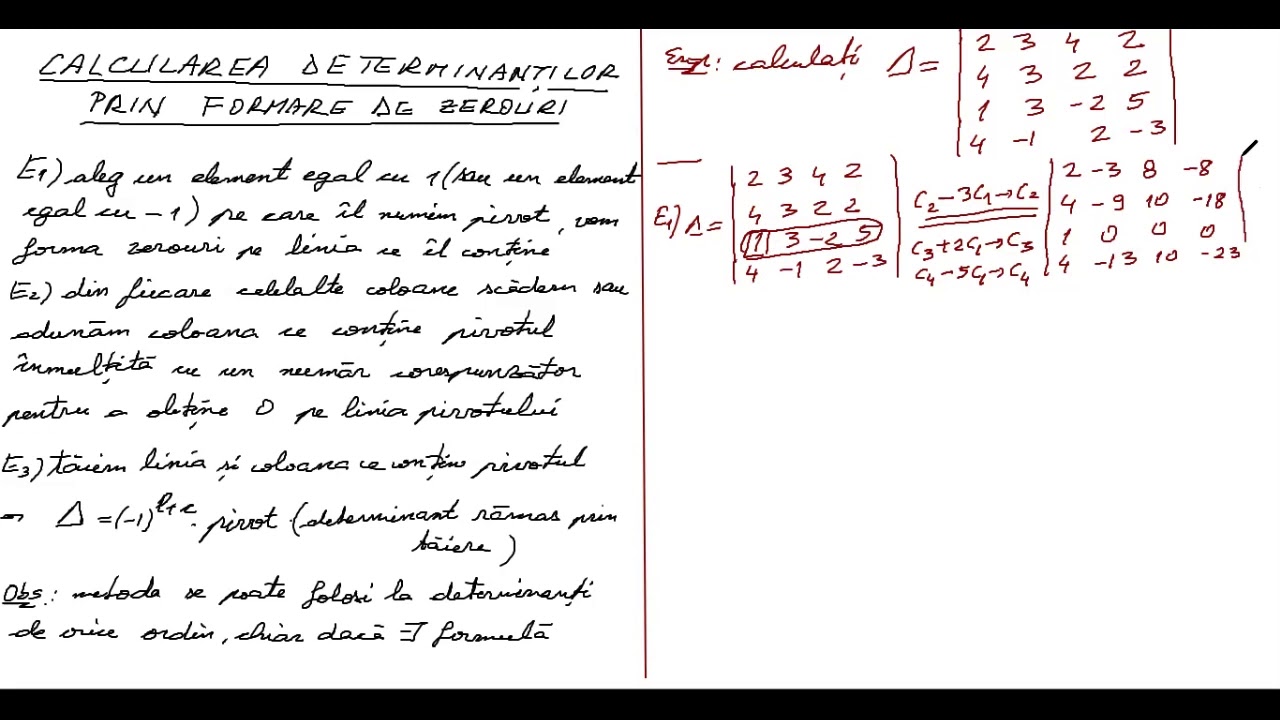 CALCULAREA DETERMINANȚILOR
PRIN FORMARE DE ZEROURI
E1) aleg un element egal cu 1 (sau un element
egal cu -1) pe care îl numim pivot, vom
forma zerouri pe linia ce îl conține
E2) din fiecare celelalte coloane scădem sau
adunăm coloana ce conține pivotul
înmulțită cu un număr corespunzător
pentru a obține 0 pe linia pivotului
E3) tăiem linia și coloana ce conțin pivotul
⇒ Δ = (-1)^(l+c) · pivot · (determinant rămas prin
tăiere)
Obs: metoda se poate folosi la determinanți
de orice ordin, chiar dacă ∃ formulă
Exp: calculați Δ =
2 3 4 2
4 3 2 2
1 3 -2 5
4 -1 2 -3
E1) Δ =
2 3 4 2
4 3 2 2
1 3 -2 5
4 -1 2 -3
C2 - 3C1 → C2
C3 + 2C1 → C3
C4 - 5C1 → C4
2 -3 8 -8
4 -9 10 -18
1 0 0 0
4 -13 10 -23